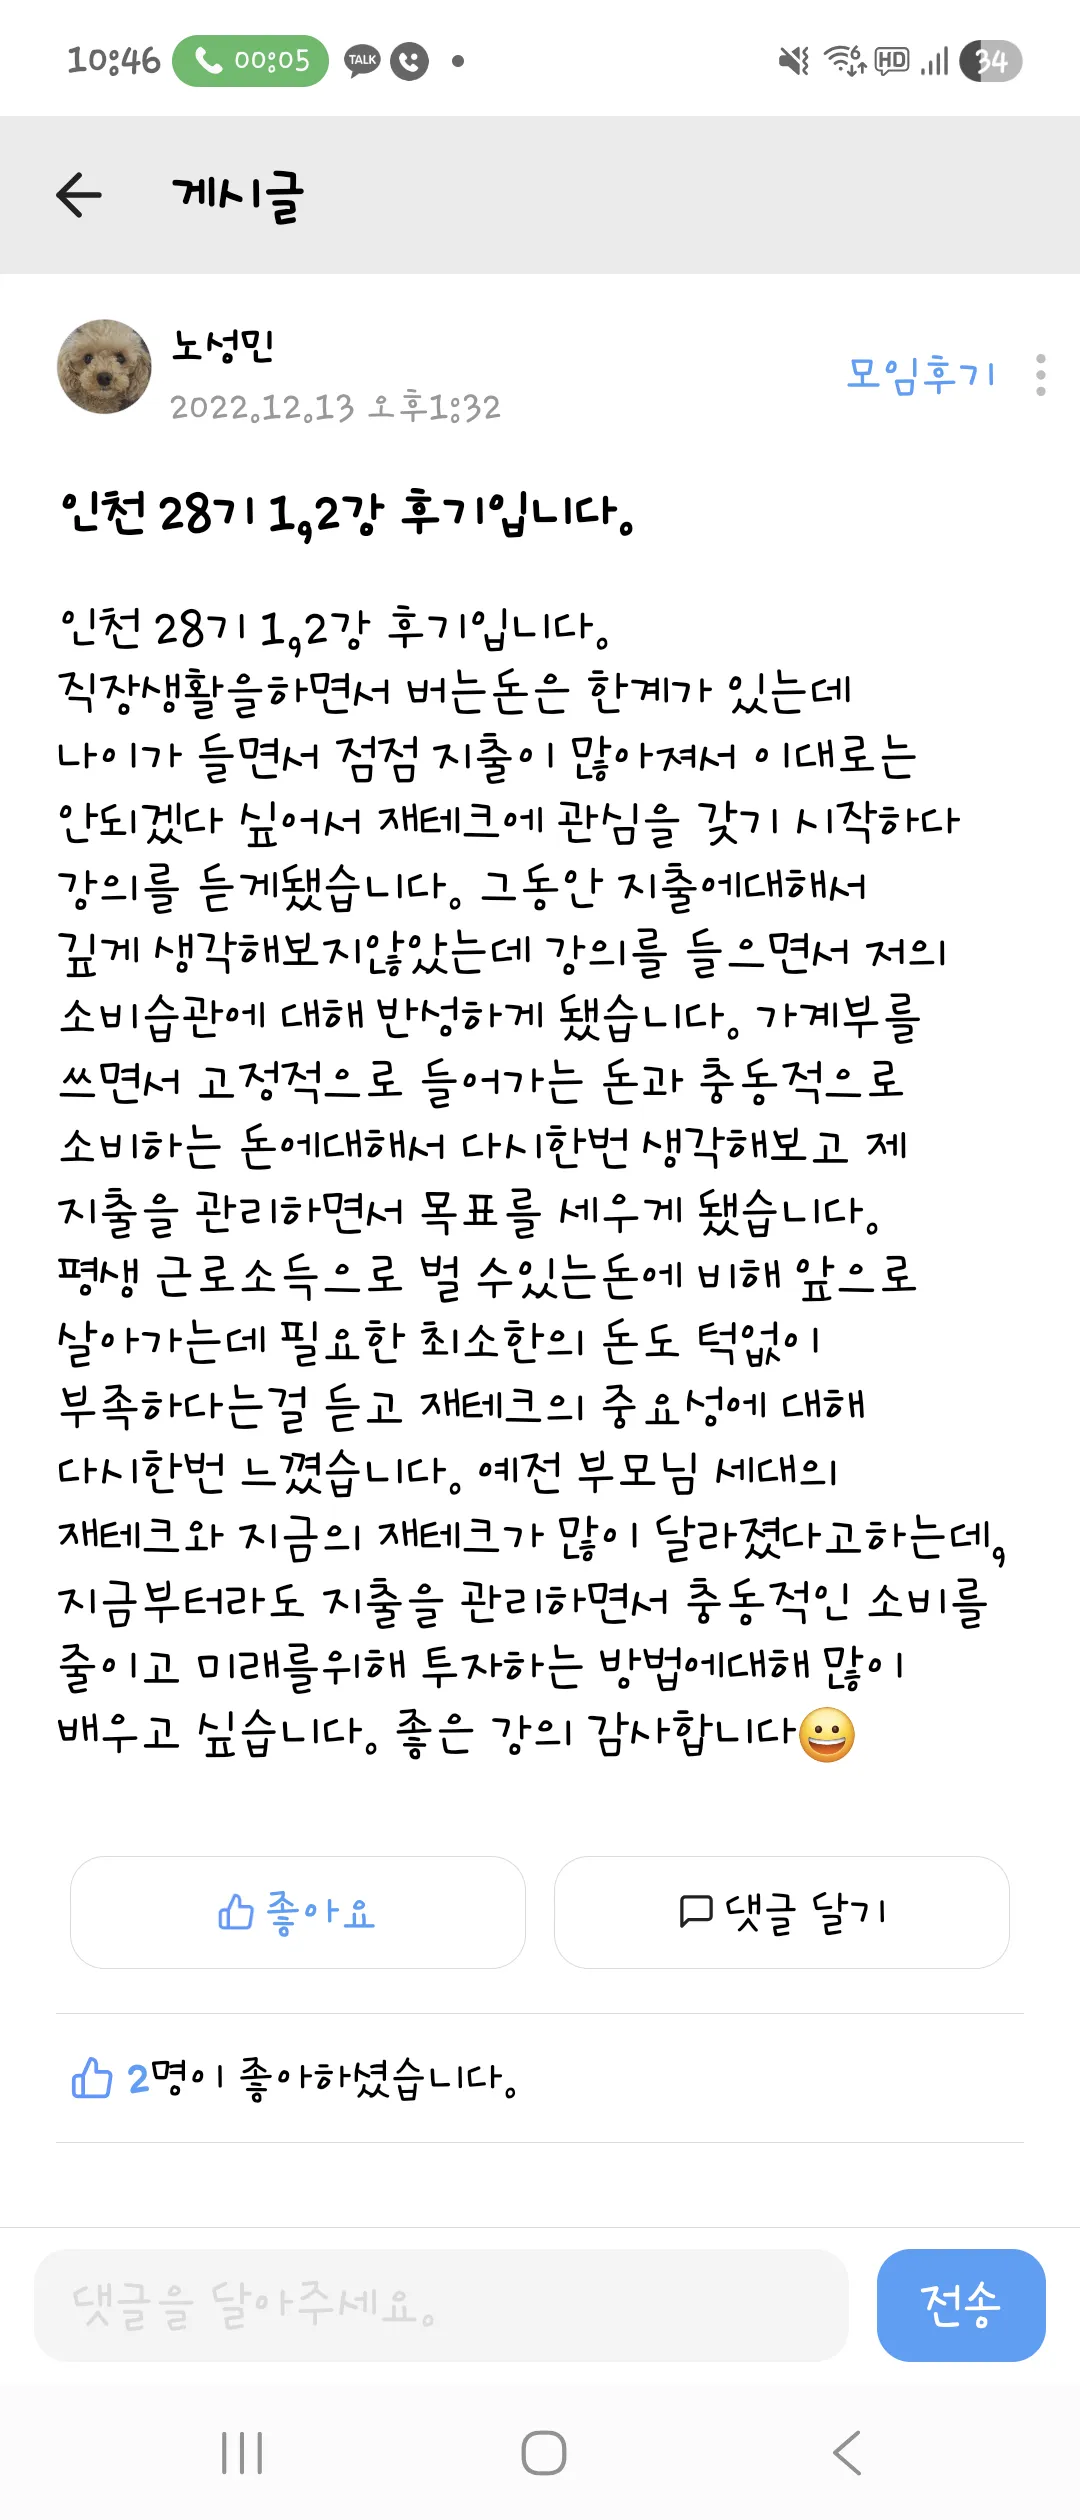 10:46 00:05 TALK HD 34
게시글
노성민
2022.12.13 오후1:32
모임후기
인천 28기 1,2강 후기입니다.
인천 28기 1,2강 후기입니다.
직장생활을하면서 버는돈은 한계가 있는데
나이가 들면서 점점 지출이 많아져서 이대로는
안되겠다 싶어서 재테크에 관심을 갖기 시작하다
강의를 듣게됐습니다. 그동안 지출에대해서
깊게 생각해보지않았는데 강의를 들으면서 저의
소비습관에 대해 반성하게 됐습니다. 가계부를
쓰면서 고정적으로 들어가는 돈과 충동적으로
소비하는 돈에대해서 다시한번 생각해보고 제
지출을 관리하면서 목표를 세우게 됐습니다.
평생 근로소득으로 벌 수있는돈에 비해 앞으로
살아가는데 필요한 최소한의 돈도 턱없이
부족하다는걸 듣고 재테크의 중요성에 대해
다시한번 느꼈습니다. 예전 부모님 세대의
재테크와 지금의 재테크가 많이 달라졌다고하는데,
지금부터라도 지출을 관리하면서 충동적인 소비를
줄이고 미래를위해 투자하는 방법에대해 많이
배우고 싶습니다. 좋은 강의 감사합니다😀
좋아요
댓글 달기
2명이 좋아하셨습니다.
댓글을 달아주세요.
전송